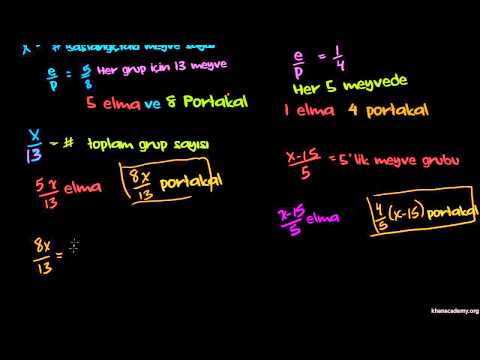 x - #
e/p = 5/8 Her grup için 13 meyve
5 elma ve 8 Portakal
x/13 - # toplam grup sayısı
5x/13 elma 8x/13 portakal
8x/13 =
e/p = 1/4
Her 5 meyvede
1 elma 4 portakal
x-15/5 = 5'lik meyve grubu
x-15/5 elma 4/5 (x-15) portakal
khanacademy.org